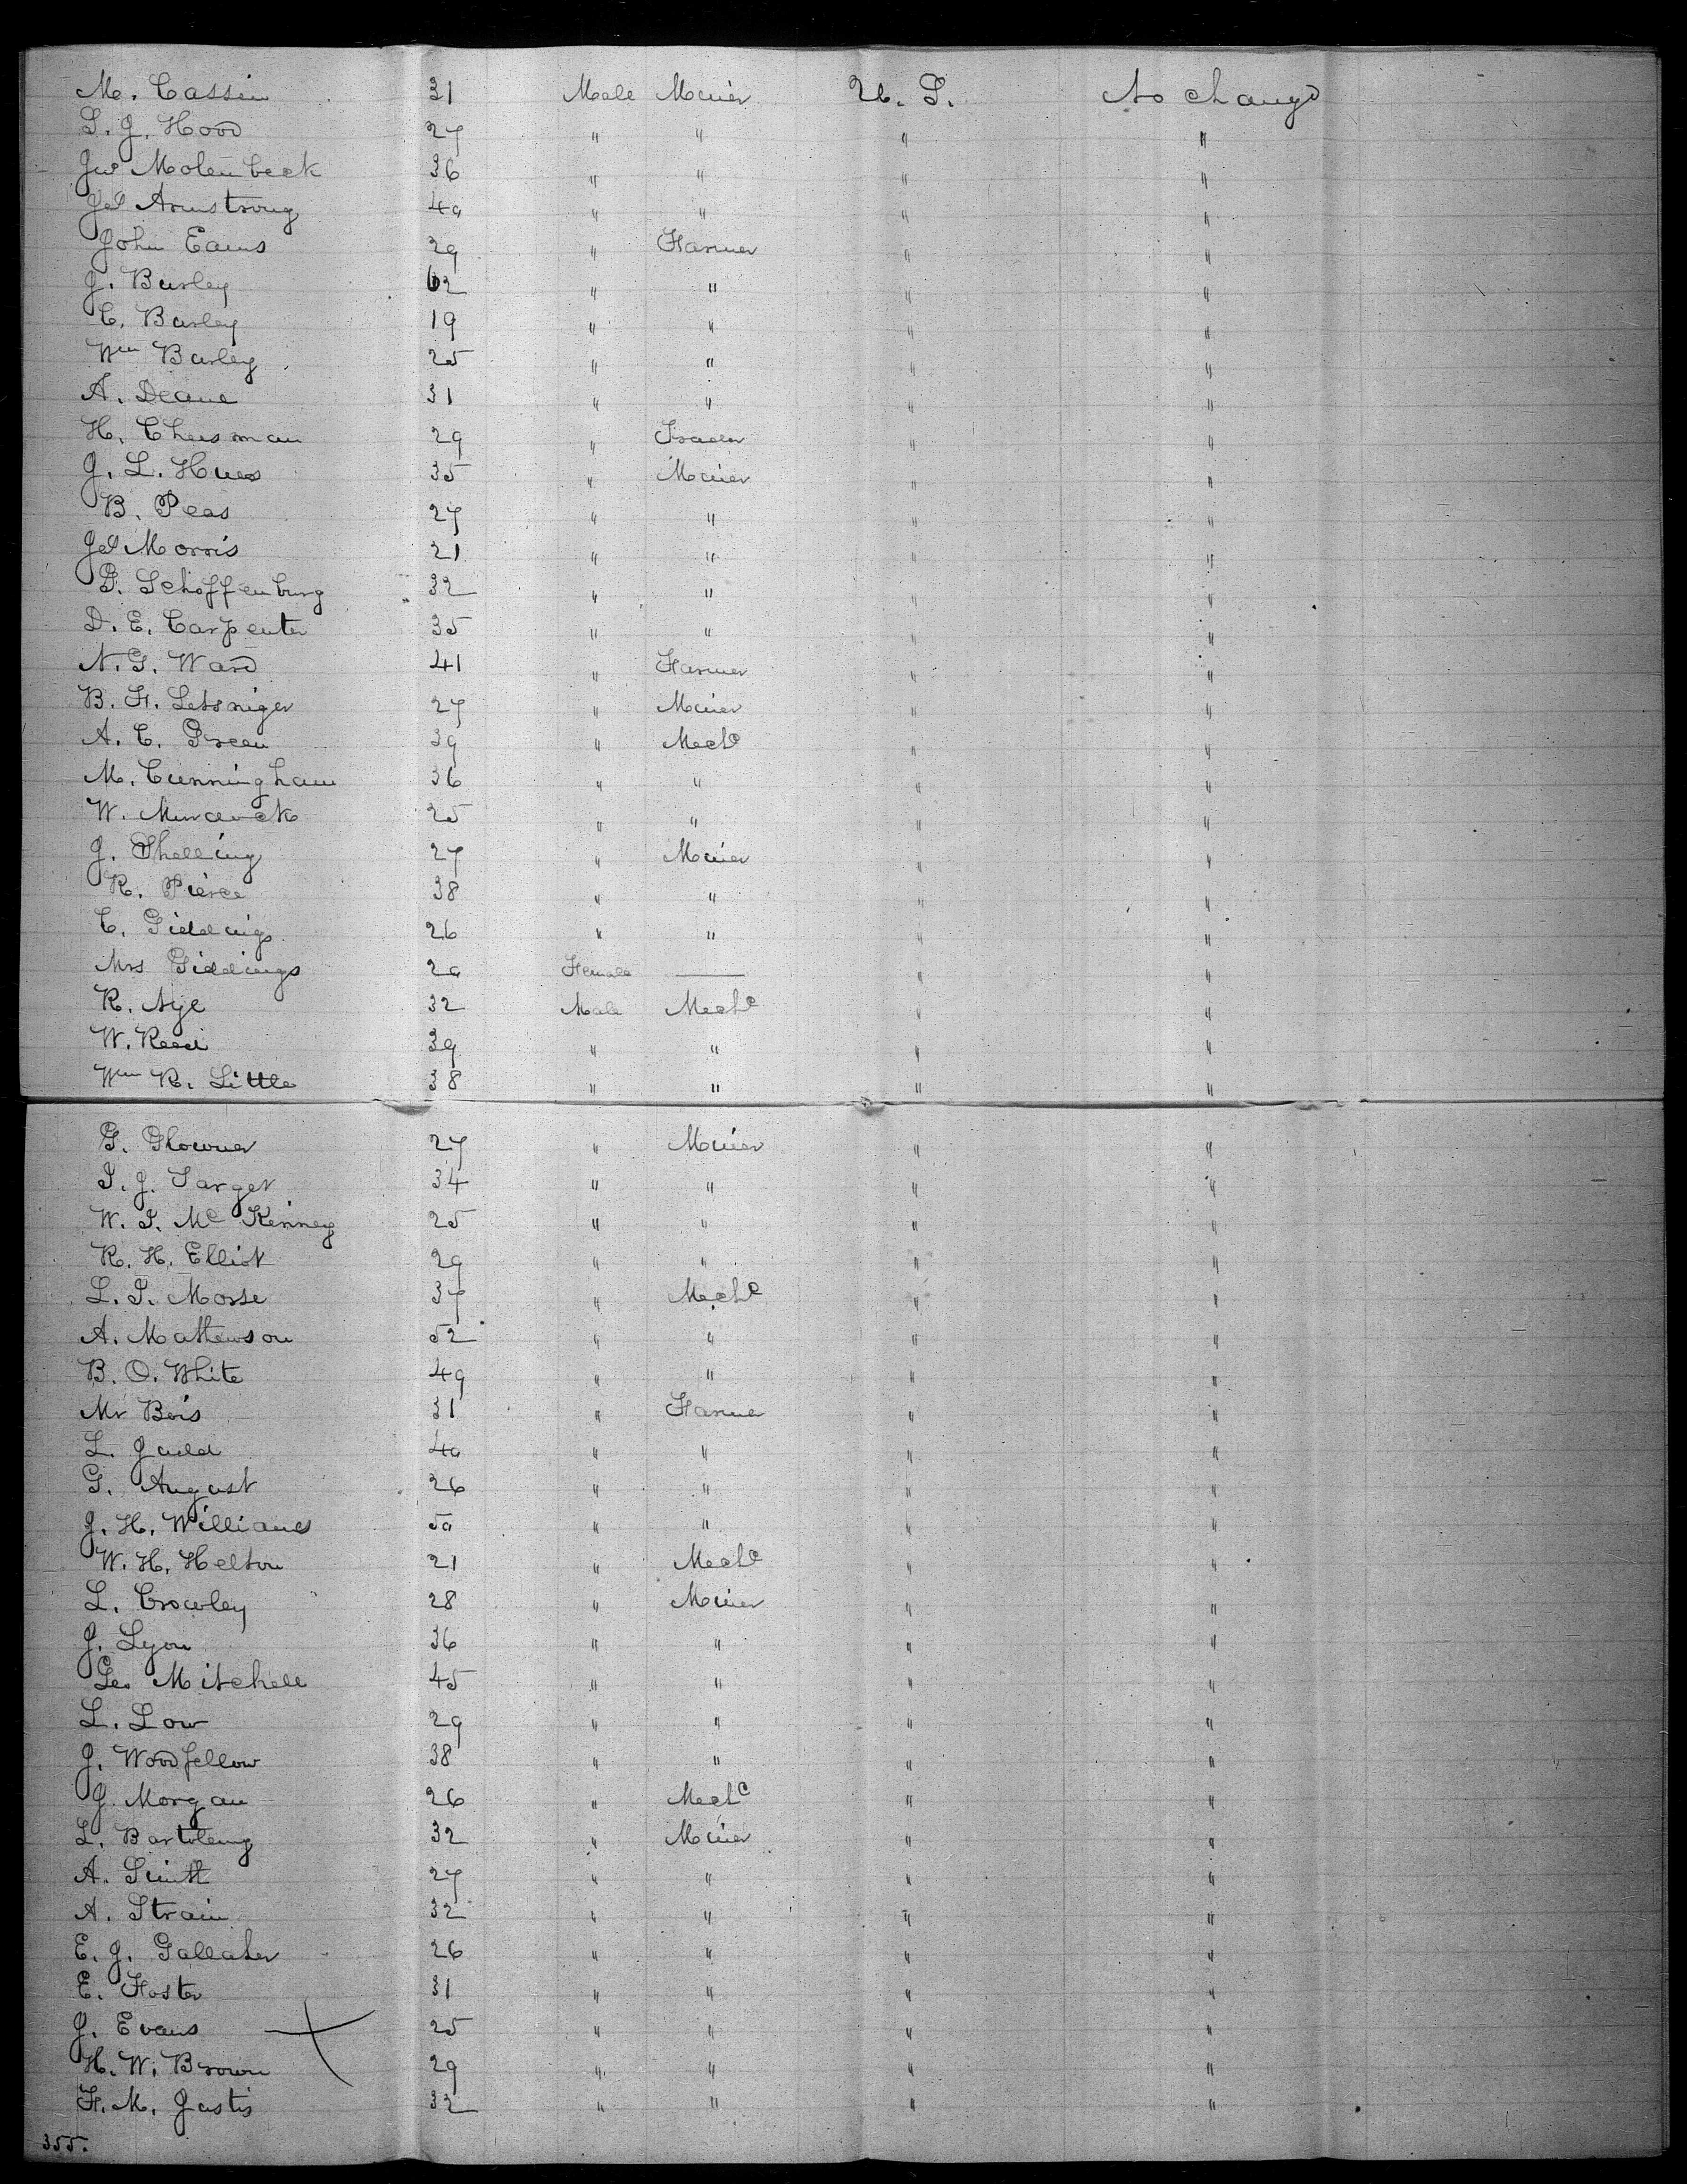 M. Cassin 31 Male Miner U. S. No change
S. J. Hood 27 " " " "
Jno Molenbeck 36 " " " "
Jas Armstrong 40 " " " "
John Eams 29 " Farmer " "
J. Burley 62 " " " "
C. Burley 19 " " " "
Wm Burley 25 " " " "
A. Deane 31 " " " "
H. Cheesman 29 " Trader " "
J. L. Hues 35 " Miner " "
B. Peas 27 " " " "
Jas Morris 21 " " " "
G. Schoffenburg 32 " " " "
D. E. Carpenter 35 " " " "
N. G. Ward 41 " Farmer " "
B. F. Letsniger 27 " Miner " "
A. C. Green 39 " Mechc " "
M. Cunningham 36 " " " "
W. Murdock 25 " " " "
J. Shelling 27 " Miner " "
R. Pierce 38 " " " "
C. Giddings 26 " " " "
Mrs Giddings 20 Female — " "
R. Nye 32 Male Mechc " "
W. Reed 39 " " " "
Wm R. Little 38 " " " "
G. Glowner 27 " Miner " "
T. J. Targer 34 " " " "
W. T. Mc Kenney 25 " " " "
R. H. Elliot 29 " " " "
L. T. Morse 37 " Mechc " "
A. Mathewson 52 " " " "
B. O. White 49 " " " "
Mr Beis 31 " Farmer " "
L. Judd 40 " " " "
G. August 26 " " " "
J. H. Williams 50 " " " "
W. H. Helton 21 " Mechc " "
L. Crowley 28 " Miner " "
J. Lyon 36 " " " "
Geo Mitchell 45 " " " "
L. Low 29 " " " "
J. Woodfellow 38 " " " "
J. Morgan 26 " Mechc " "
L. Bartolemy 32 " Miner " "
A. Smith 27 " " " "
A. Strain 32 " " " "
E. J. Gallaher 26 " " " "
E. Foster 31 " " " "
J. Evans 25 " " " "
H. W. Brown 29 " " " "
F. M. Justis 32 " " " "
355.